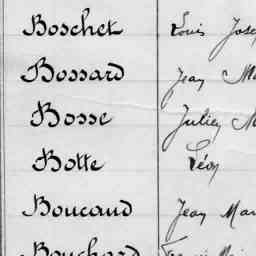 Boschet Louis
Bossard Jean
Bosse Julien
Botte Léon
Boucaud Jean
Bouchard